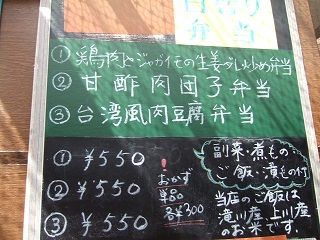 日替り
弁当
① 鶏肉とジャガイモの生姜だし炒め弁当
② 甘酢肉団子弁当
③ 台湾風肉豆腐弁当
① ¥550
② ¥550
③ ¥550
! おかず
単品
各¥300
副菜・煮もの
ご飯・漬もの付
当店のご飯は
滝川産、上川産
のお米です。